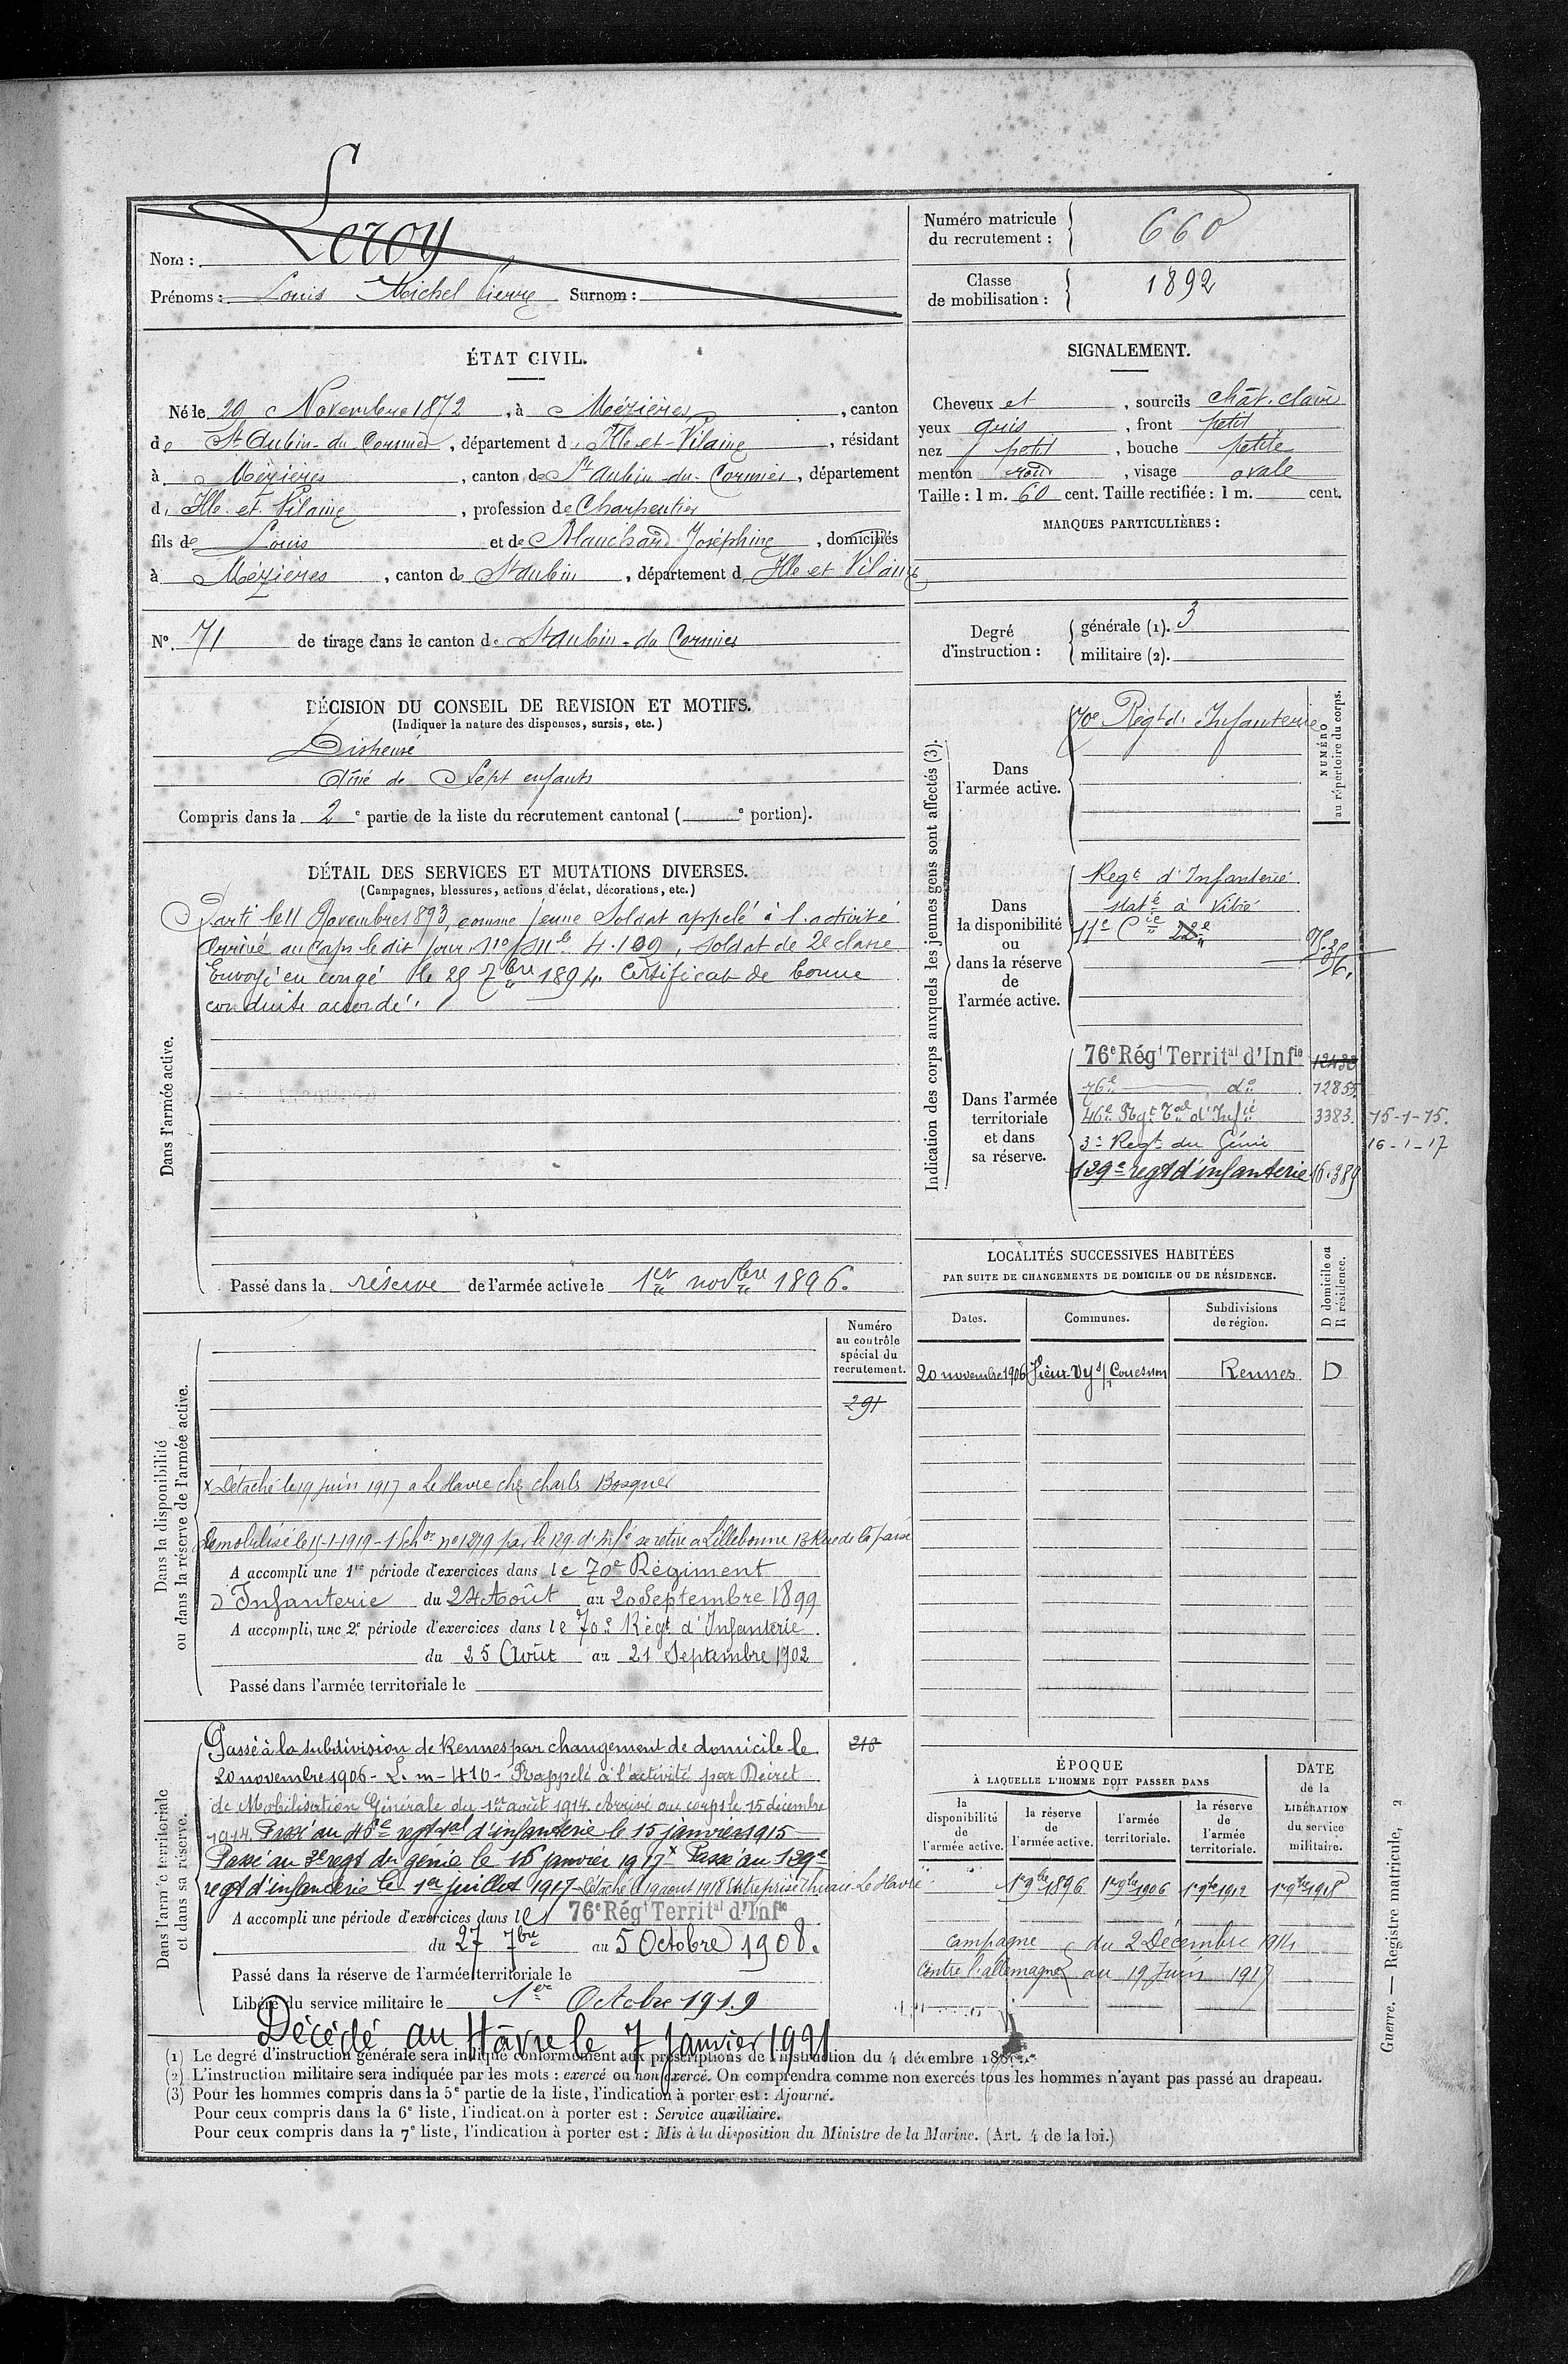 Nom : Leroy
Prénoms : Louis Michel Pierre Surnom :
Numéro matricule du recrutement : 660
Classe de mobilisation : 1892
ÉTAT CIVIL.
Né le 29 Novembre 1872, à Mézières, canton
de St Aubin-du Cormier, département d'Ille-et-Vilaine, résidant
à Mézières, canton de St Aubin-du-Cormier, département
d'Ille et Vilaine, profession de Charpentier
fils de Louis et de Blanchard Joséphine, domiciliés
à Mézières, canton de St Aubin, département d'Ille et Vilaine
No. 71 de tirage dans le canton de St Aubin-du Cormier
SIGNALEMENT.
Cheveux et, sourcils chât. clairs
yeux gris, front petit
nez petit, bouche petite
menton rond, visage ovale
Taille : 1 m. 60 cent. Taille rectifiée : 1 m. cent.
MARQUES PARTICULIÈRES :
Degré d'instruction :
générale (1). 3
militaire (2).
DÉCISION DU CONSEIL DE REVISION ET MOTIFS.
(Indiquer la nature des dispenses, sursis, etc.)
Dispensé
Aîné de Sept enfants
Compris dans la 2e partie de la liste du recrutement cantonal ( e portion).
DÉTAIL DES SERVICES ET MUTATIONS DIVERSES.
(Campagnes, blessures, actions d'éclat, décorations, etc.)
Dans l'armée active.
Parti le 11 Novembre 1893, comme jeune Soldat appelé à l'activité
Arrivé au Corps le dit jour, No Mle 4.109, soldat de 2e classe
Envoyé en congé le 25 7bre 1894. Certificat de bonne
conduite accordé.
Passé dans la réserve de l'armée active le 1er novbre 1896.
Indication des corps auxquels les jeunes gens sont affectés (3).
NUMÉRO au répertoire du corps.
Dans l'armée active.
70e Régt d'Infanterie
Dans la disponibilité ou dans la réserve de l'armée active.
Regt d'Infanterie
staté à Vitré
11e Cie 22e
Dans l'armée territoriale et dans sa réserve.
76e Régt Territal d'Infie 12430
76e do 12855
46e Rgt Tal d'Infie 3383. 15-1-15.
3e Regt du Génie 16-1-17
129e regt d'infanterie 16.389
LOCALITÉS SUCCESSIVES HABITÉES
PAR SUITE DE CHANGEMENTS DE DOMICILE OU DE RÉSIDENCE.
Dates. Communes. Subdivisions de région. D domicile ou R résidence.
20 novembre 1906 Vieux-Vy s/ Couesnon Rennes D
Dans la disponibilité ou dans la réserve de l'armée active.
Numéro au contrôle spécial du recrutement.
291
x Détaché le 19 juin 1917 a Le Havre chez Charles Bosquer
Démobilisé le 15-1-1919 - 1 Échon no 1279 par le 129 d'Infie se retire a Lillebonne 13 Rue de la
A accompli une 1re période d'exercices dans le 70e Régiment
d'Infanterie du 24 Août au 20 Septembre 1899
A accompli, une 2e période d'exercices dans le 70e Régt d'Infanterie
du 25 Août au 21 Septembre 1902
Passé dans l'armée territoriale le
Dans l'armée territoriale et dans sa réserve.
Passé à la subdivision de Rennes par changement de domicile le 210
20 novembre 1906 - L. m - 410 - Rappelé à l'activité par Décret
de Mobilisation Générale du 1er août 1914. Arrivé au corps le 15 décembre
1914. Passé au 46e regt tal d'infanterie le 15 janvier 1915
Passé au 3e regt du génie le 16 janvier 1917 x Passé au 129e
regt d'infanterie le 1er juillet 1917 - Détaché le 19 aout 1918 Entreprise Le Havre
A accompli une période d'exercices dans le 76e Régt Territal d'Infie
du 27 7bre au 5 Octobre 1908.
Passé dans la réserve de l'armée territoriale le
Libéré du service militaire le 1er Octobre 1919
Décédé au Hâvre le 7 janvier 1921
ÉPOQUE
À LAQUELLE L'HOMME DOIT PASSER DANS
DATE de la LIBÉRATION du service militaire.
la disponibilité de l'armée active. la réserve de l'armée active. l'armée territoriale. la réserve de l'armée territoriale.
1er 9bre 1896 1er 9bre 1906 1er 9bre 1912 1er 9bre 1918
campagne contre l'allemagne
du 2 Décembre 1914
au 19 Juin 1917
(1) Le degré d'instruction générale sera indiqué conformément aux prescriptions de l'instruction du 4 décembre
(2) L'instruction militaire sera indiquée par les mots : exercé ou non exercé. On comprendra comme non exercés tous les hommes n'ayant pas passé au drapeau.
(3) Pour les hommes compris dans la 5e partie de la liste, l'indication à porter est : Ajourné.
Pour ceux compris dans la 6e liste, l'indication à porter est : Service auxiliaire.
Pour ceux compris dans la 7e liste, l'indication à porter est : Mis à la disposition du Ministre de la Marine. (Art. 4 de la loi.)
Guerre. — Registre matricule, 2